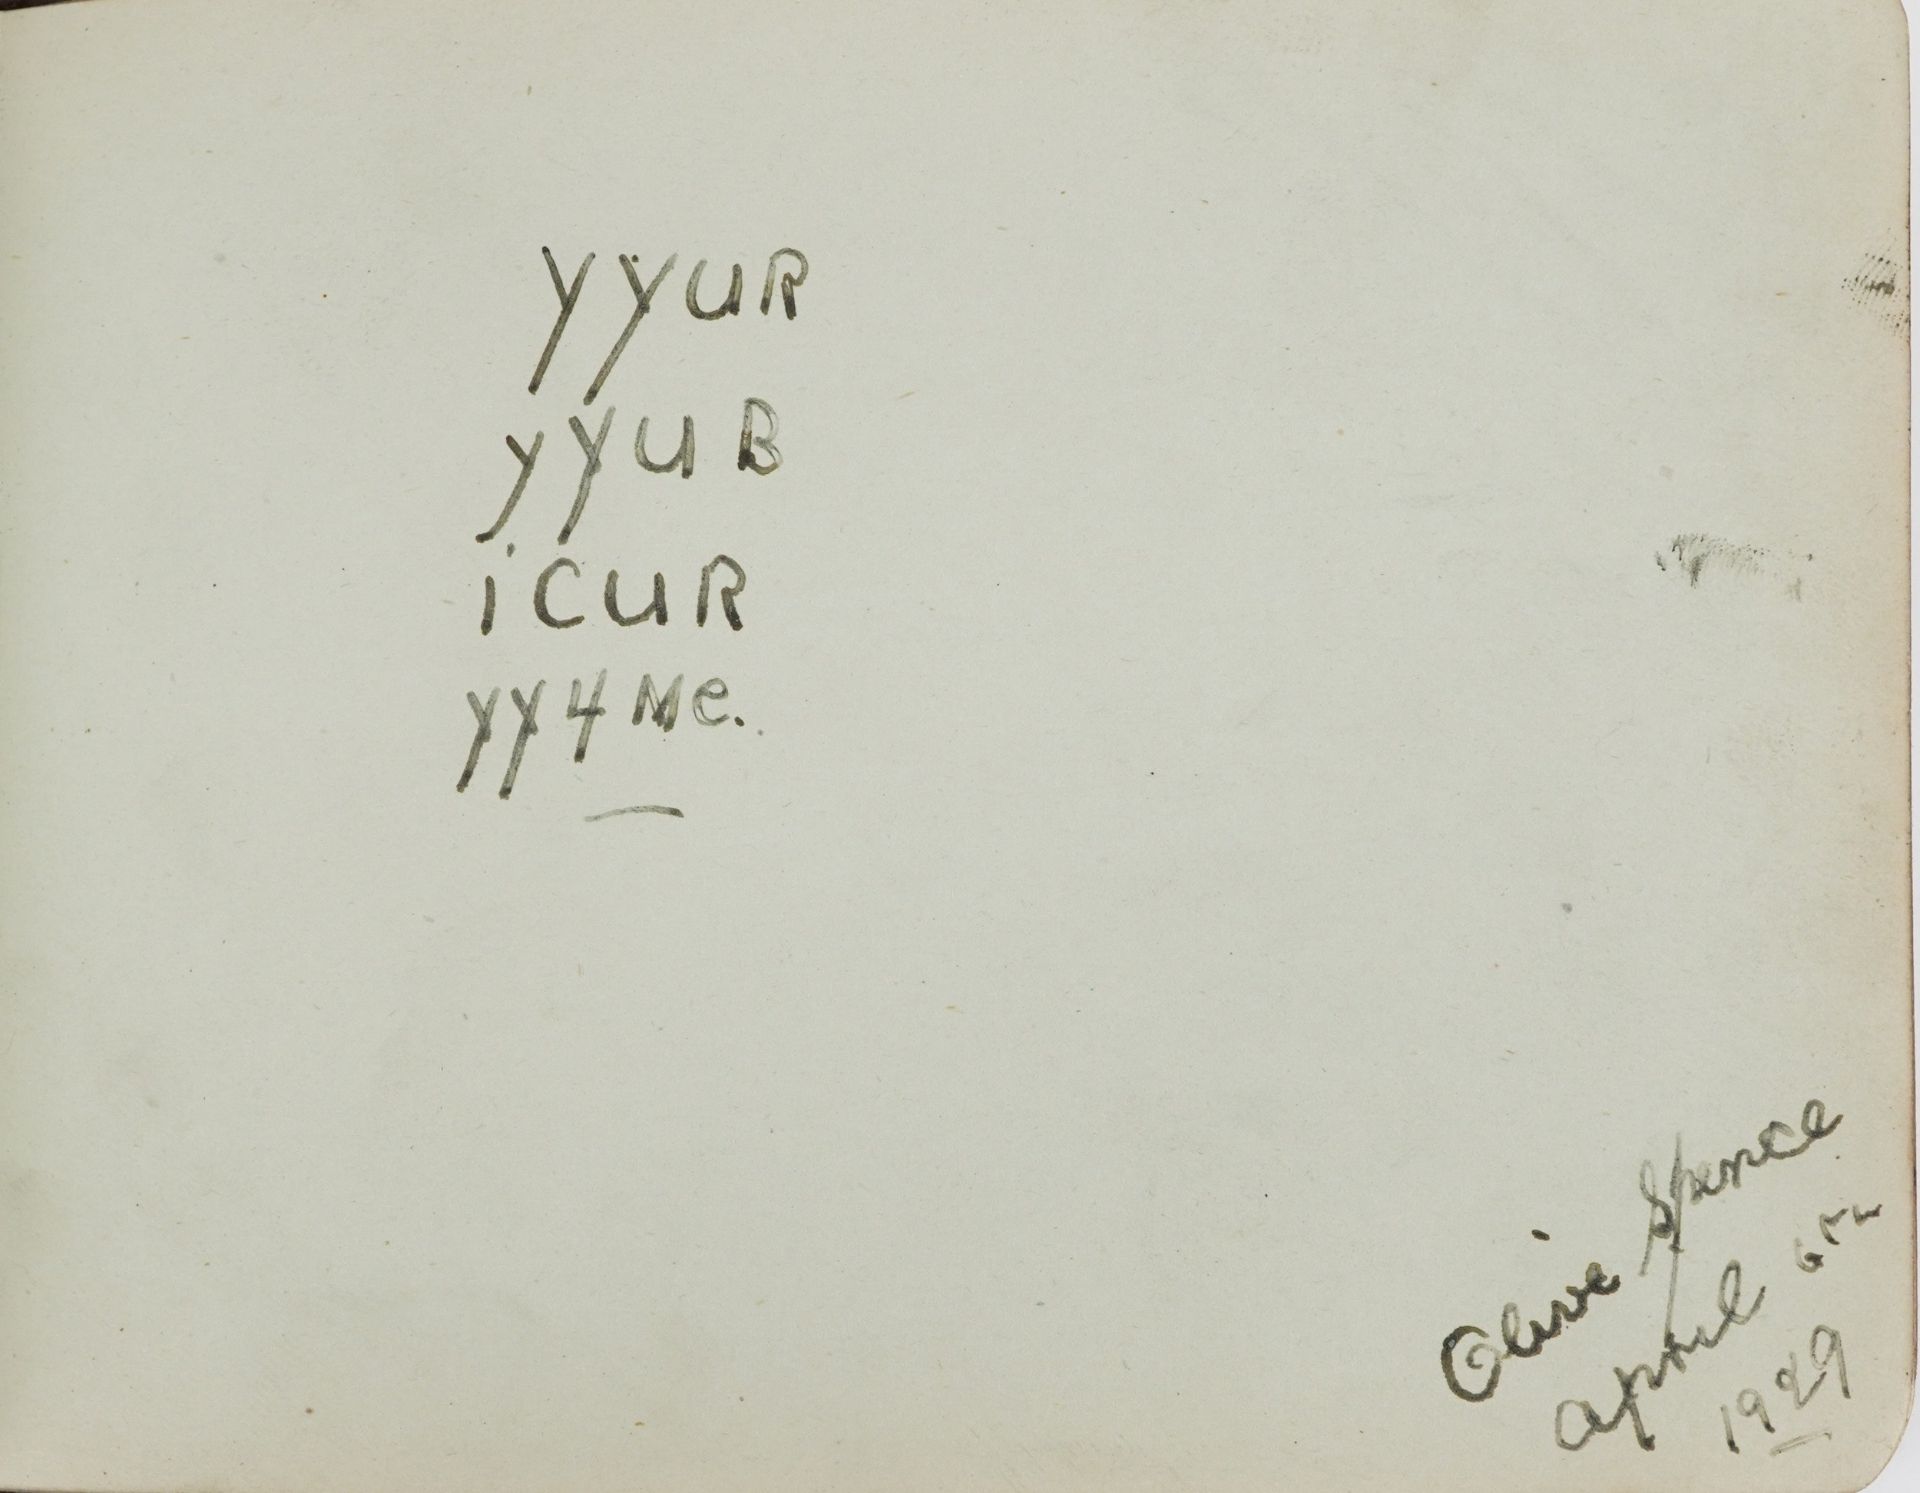 yyuR
yyuB
iCuR
yy4Me.
Olive Spence
April 6th
1929